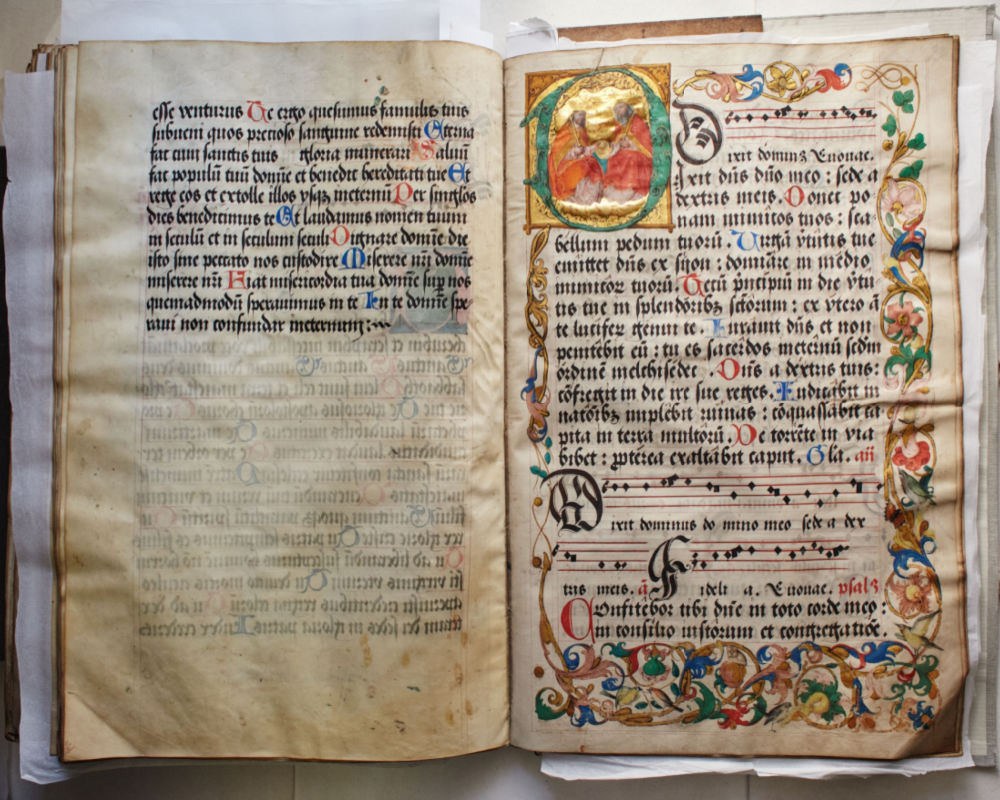 esse venturus Te ergo quesumus famulis tuis
subueni quos precioso sanguine redemisti Eterna
fac cum sanctis tuis gloria munerari Saluum
fac populū tuū domine et benedic hereditati tue Et
rege eos et extolle illos vsqȝ ineternū Per singlos
dies benedicimus te Et laudamus nomen tuum
in seculū et in seculum seculi Dignare domīe die
isto sine peccato nos custodire Miserere nr̄i domīe
miserere nr̄i Fiat misericordia tua domīe sup̄ nos
quemadmodū sperauimus in te In te domīe spe-
raui non confundar ineternum:
D
ixit dominȝ Euouae.
Dixit dn̄s dn̄o meo : sede a
dextris meis. Donec po
nam inimicos tuos : sca-
bellum pedum tuorū. Virgā v̄tutis tue
emittet dn̄s ex syon : domiare in medio
inimicor tuorū. Tecū p̄ncipiū in die v̄tu
tis tue in splendoribȝ sc̄torum : ex vtero ā
te lucifer genui te. Iurauit dn̄s et non
penitebit eū : tu es sacerdos ineternū sedm
ordinē melchisedec. Dn̄s a dextris tuis:
cōfregit in die ire sue reges. Iudicabit in
natōibȝ implebit ruinas : cōquassabit ca
pita in terra multorū. De torrēte in via
bibet : p̄pterea exaltabit caput. Gl̄a. an̄
D
ixit dominus do mino meo sede a dex
F
tris meis. a᷃ ideli a. Euouae. psalȝ
Confitebor tibi dn̄e in toto corde meo :
in consilio iustorum et congregatiōe.